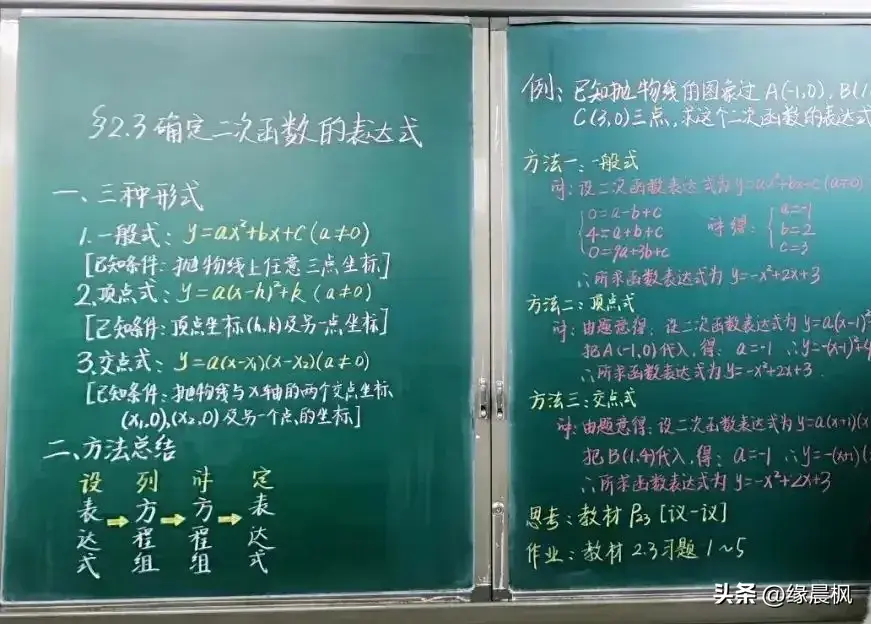 §2.3 确定二次函数的表达式
一、三种形式
1.一般式：y=ax²+bx+c(a≠0)
[已知条件：抛物线上任意三点坐标]
2.顶点式：y=a(x-h)²+k(a≠0)
[已知条件：顶点坐标(h,k)及另一点坐标]
3.交点式：y=a(x-x₁)(x-x₂)(a≠0)
[已知条件：抛物线与x轴的两个交点坐标
(x₁,0),(x₂,0)及另一个点的坐标]
二、方法总结
设表达式→列方程组→解方程组→定表达式
例：已知抛物线的图象过A(-1,0),B(1
C(3,0)三点,求这个二次函数的表达式
方法一：一般式
解：设二次函数表达式为y=ax²+bx+c(a≠0)
0=a-b+c
4=a+b+c
0=9a+3b+c
解得：
a=-1
b=2
c=3
∴所求函数表达式为y=-x²+2x+3
方法二：顶点式
解：由题意得：设二次函数表达式为y=a(x-1)²
把A(-1,0)代入,得：a=-1 ∴y=-(x-1)²+4
∴所求函数表达式为y=-x²+2x+3
方法三：交点式
解：由题意得：设二次函数表达式为y=a(x+1)(x
把B(1,4)代入,得：a=-1 ∴y=-(x+1)(
∴所求函数表达式为y=-x²+2x+3
思考：教材P23[议一议]
作业：教材2.3习题1~5
头条 @缘晨枫